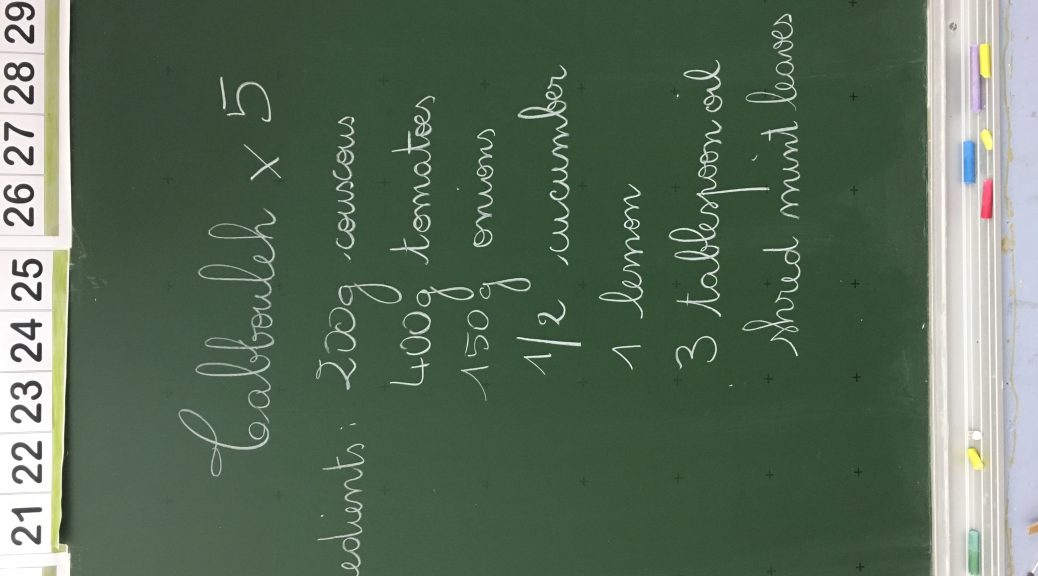 21 22 23 24 25 26 27 28 29
Tabbouleh x 5
edients: 200g couscous
400g tomatoes
150g onions
1/2 cucumber
1 lemon
3 tablespoon oil
shred mint leaves